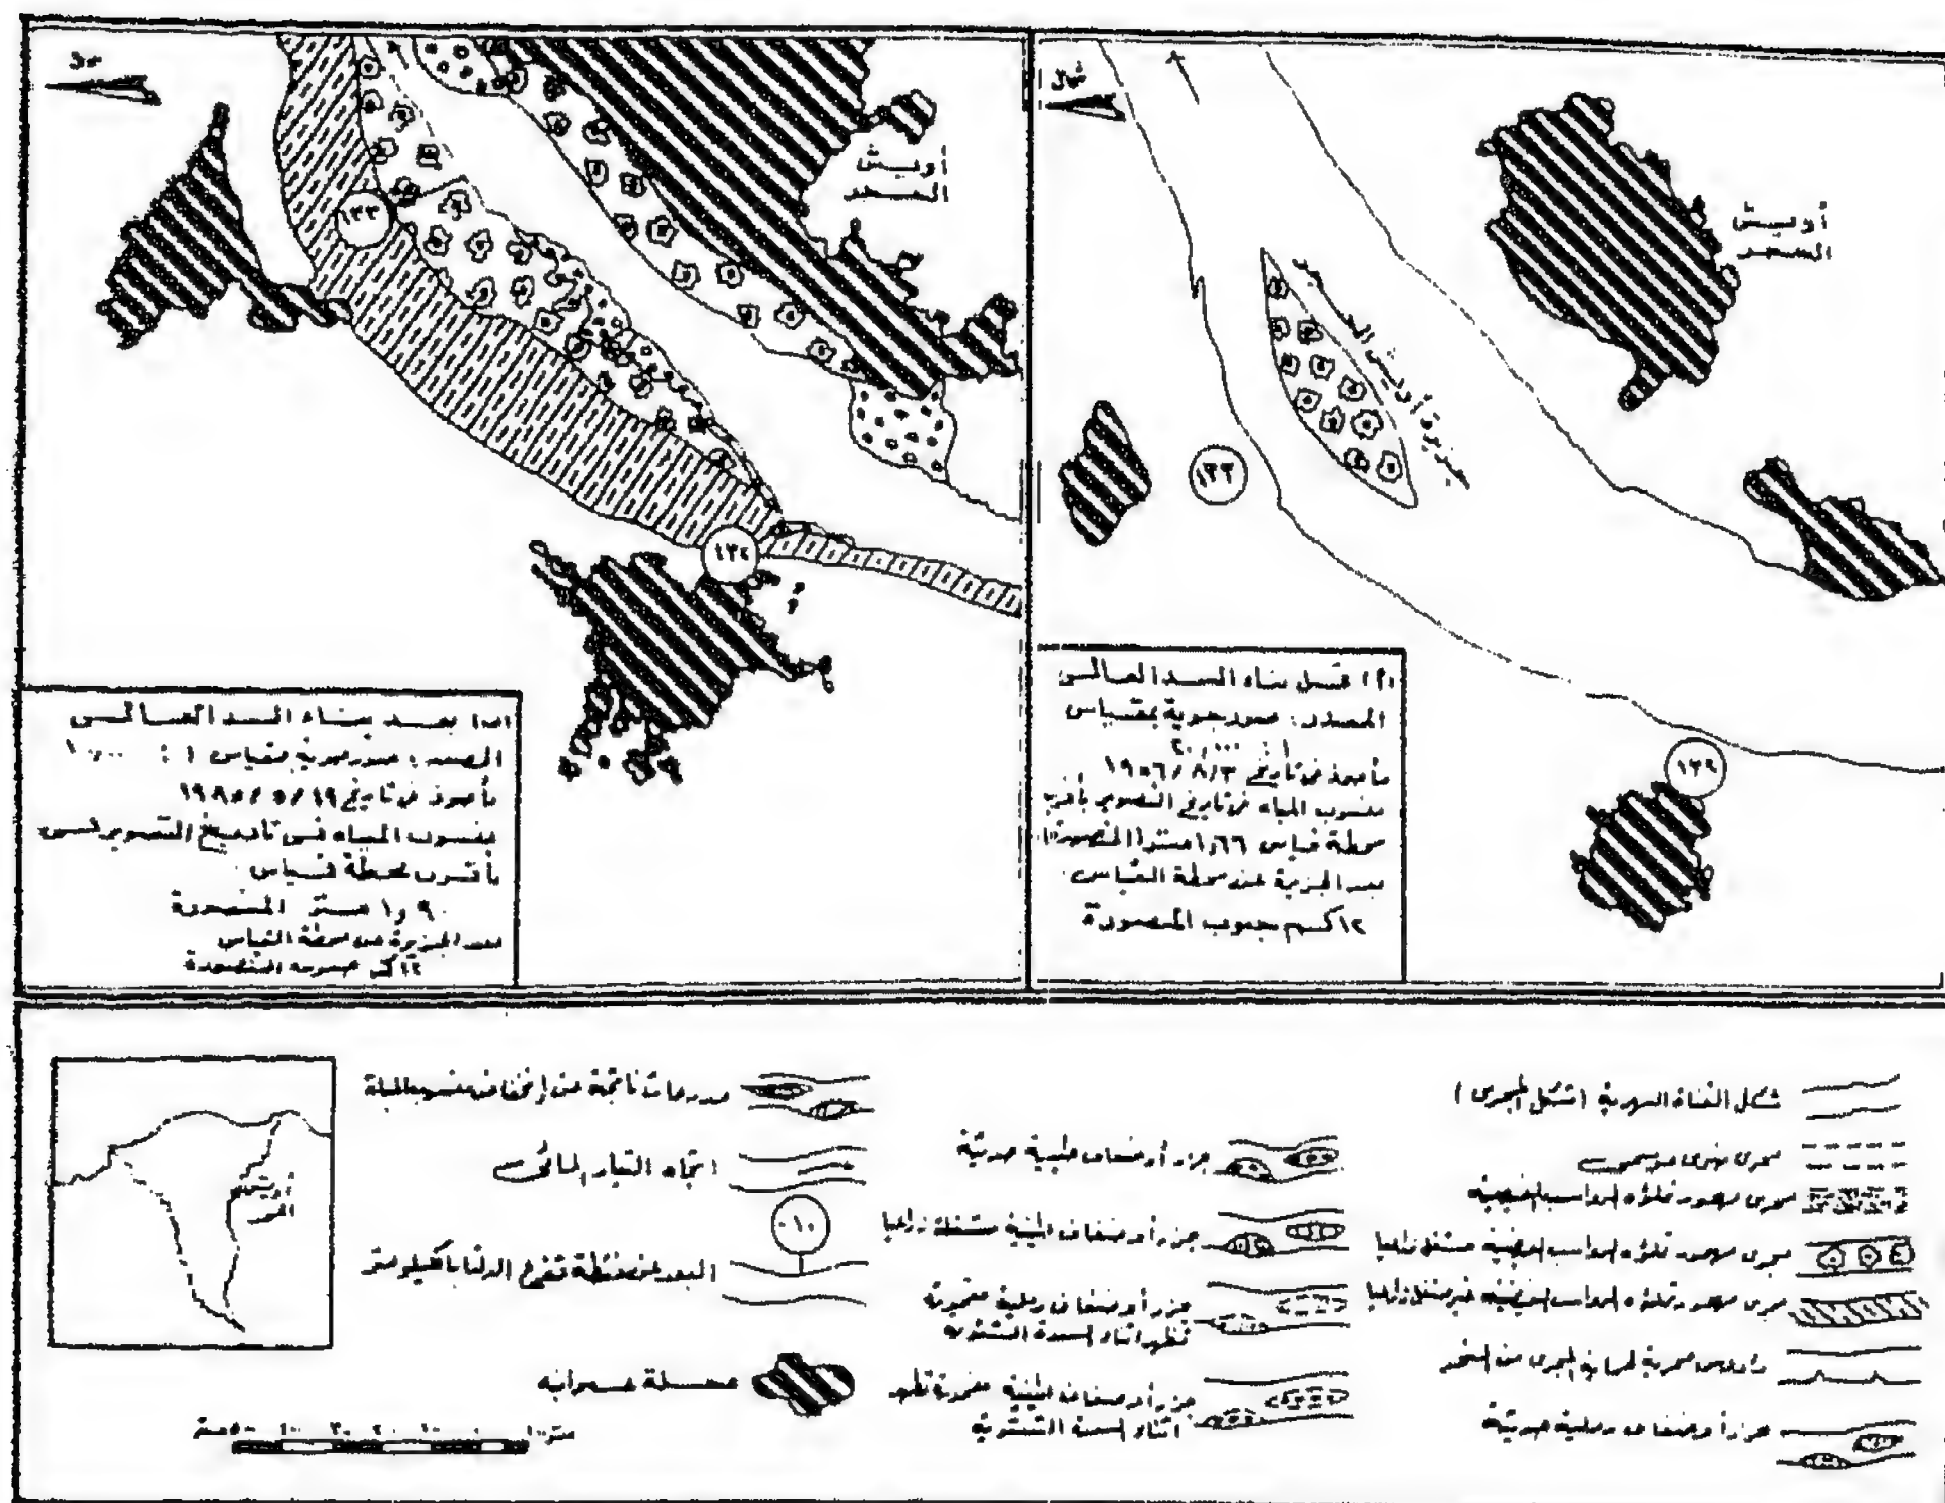 شمال
أويش
الحجر
جزيرة أويش الحجر
١٣٣
١٣٩
(أ) قبل بناء السد العالى
المصدر: صور جوية بمقياس
١ : ٢٠,٠٠٠
مأخوذة فى تاريخ ١٩٥٦/٨/٣
منسوب المياه فى تاريخ التصوير بأقرب
محطة قياس ١,٦٦ متر (المنصورة)
بعد الجزيرة عن محطة القياس
١٢ كم جنوب المنصورة
أويش
الحجر
١٣٣
١٣٤
بعد بناء السد العالى
المصدر: صور جوية مقياس ١ : ١٠,٠٠٠
مأخوذة فى تاريخ ١٩ / ٥ / ١٩٨٥
منسوب المياه فى تاريخ التصوير
بأقرب محطة قياس
متر المنصورة
بعد الجزيرة عن محطة القياس
١٢ كم جنوب المنصورة
شكل القناة النهرية (شكل المجرى)
مجرى نهرى موسمى
مجرى مهجور تملؤه الرواسب الفيضية
مجرى مهجور تملؤه الرواسب الفيضية مستغل زراعيا
مجرى مهجور تملؤه الرواسب الفيضية غير مستغل زراعيا
رؤوس حجرية لحماية المجرى من النحر
جزر أو ضفاف رملية حديثة
جزر أو ضفاف طينية حديثة
جزر أو ضفاف طينية مستغلة زراعيا
جزر أو ضفاف رملية مغمورة
تظهر أثناء السدة الشتوية
جزر أو ضفاف طينية مغمورة تظهر
أثناء السدة الشتوية
ناتجة عن إنخفاض منسوب المياه
اتجاه التيار المائى
٠١٠
البعد عن نقطة تفرع الدلتا بالكيلومتر
محلة عمرانية
أويش
الحجر
متر